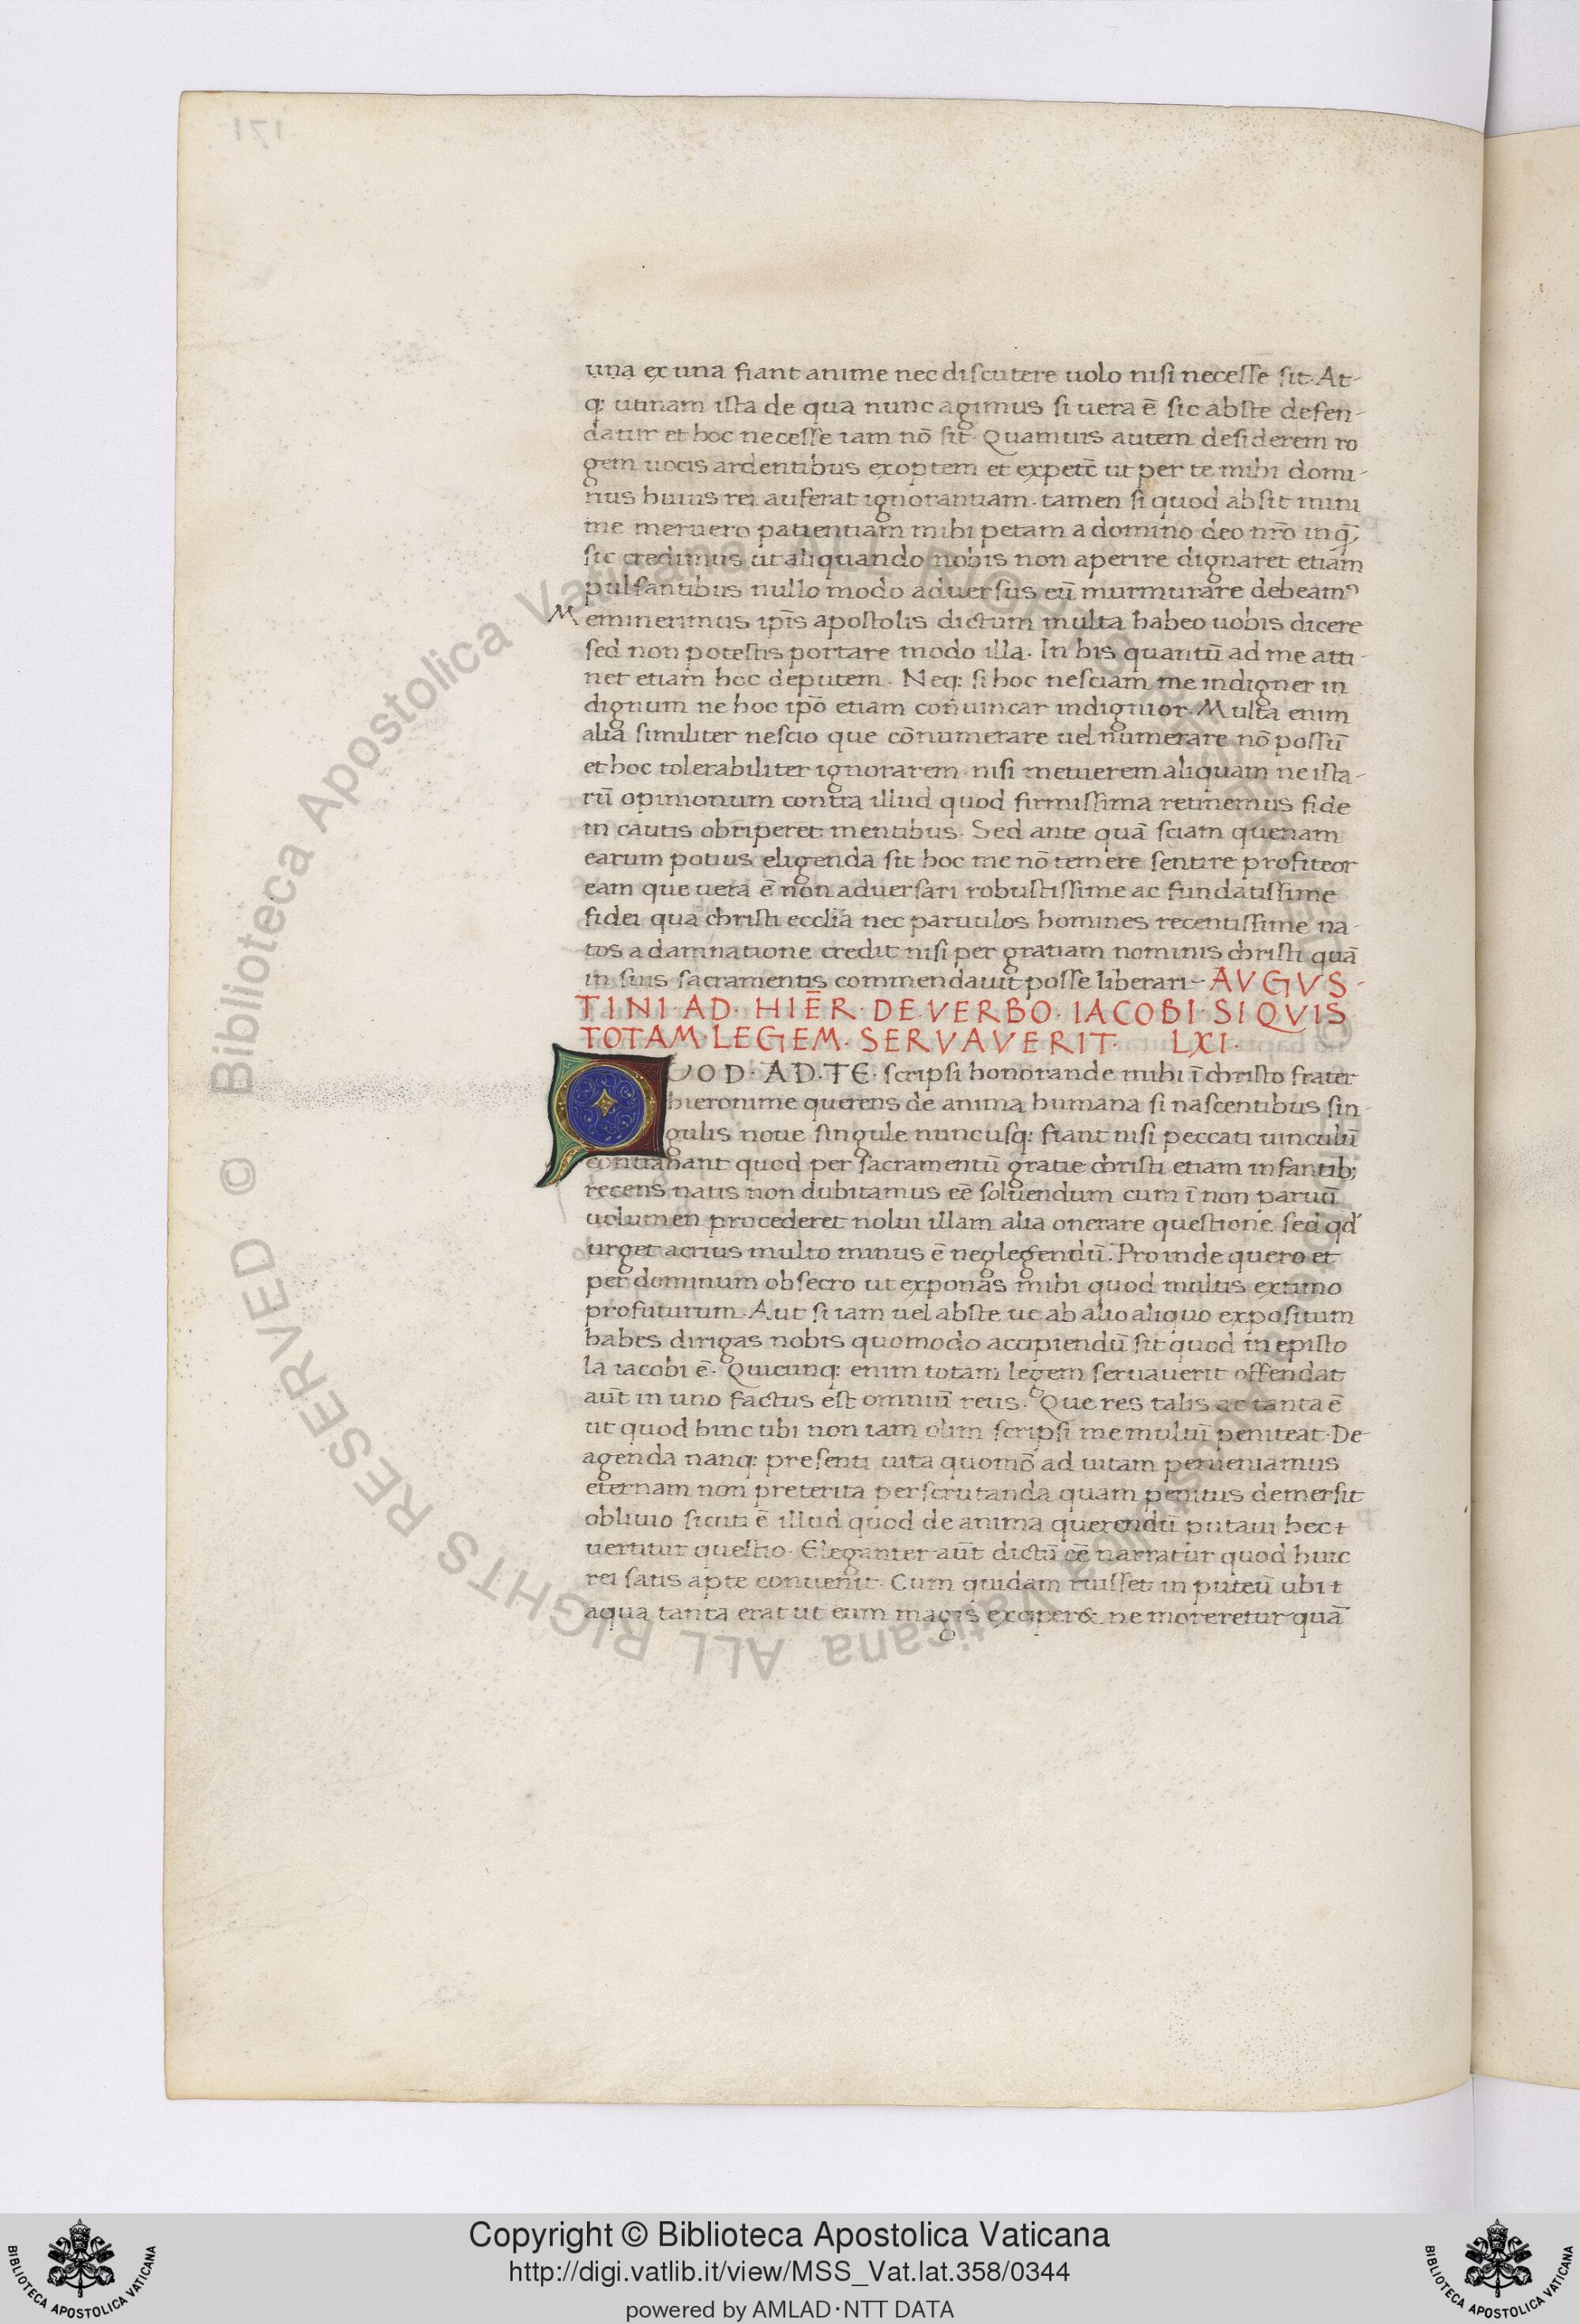 una ex una fiant anime nec discutere uolo nisi necesse sit. At-
q: utinam ista de qua nunc agimus si uera ē sic abste defen-
datur et hoc necesse iam nō sit. Quamuis autem desiderem ro
gem uocis ardentibus exoptem et expetē ut per te mihi domi-
nus huius rei auferat ignorantiam. tamen si quod absit mini
me meruero patientiam mihi petam a domino deo nr̄o in q̄
sic credimus ut aliquando nobis non aperire dignaret etiam
pulsantibus nullo modo aduersus eū murmurare debeamꝰ
Meminerimus ip̄is apostolis dictum multa habeo uobis dicere
sed non potestis portare modo illa. In his quantū ad me atti-
net etiam hoc deputem. Neq: si hoc nesciam me indigner in
dignum ne hoc ip̄o etiam conuincar indignior. Multa enim
alia similiter nescio que cōnumerare uel numerare nō possū
et hoc tolerabiliter ignorarem. nisi metuerem aliquam ne ista-
rū opinionum contra illud quod firmissima retinemus fide
in cautis obriperet mentibus. Sed ante quā sciam quenam
earum potius eligenda sit hoc me nō temere sentire profiteor
eam que uera ē non aduersari robustissime ac fundatissime
fidei qua christi eccl̄ia nec paruulos homines recentissime na-
tos a damnatione credit nisi per gratiam nominis christi quā
in suis sacramentis commendauit posse liberari- AVGVS-
TINI· AD· HIĒR· DE· VERBO· IACOBI· SI QVIS
TOTAM· LEGEM· SERVAVERIT· LXI·
QUOD· AD· TE· scripsi honorande mihi ī christo frater
hieronime querens de anima humana si nascentibus sin-
gulis noue singule nuncusq: fiant nisi peccati uinculū
contrahant quod per sacramentū gratie christi etiam infantib;
recens natis non dubitamus eē soluendum cum ī non paruū
uolumen procederet nolui illam alia onerare questione sed qd̓
urget acrius multo minus ē neglegendū. Proinde quero et
per dominum obsecro ut exponas mihi quod multis extimo
profuturum. Aut si iam uel abste ut ab alio aliquo expositum
habes dirigas nobis quomodo accipiendū sit quod in episto
la iacobi ē. Quicunq: enim totam legem seruauerit offendat
aūt in uno factus est omniū reus. Que res talis ac tanta ē
ut quod hinc tibi non iam olim scripsi me multū peniteat. De-
agenda nanq: presenti uita quomō ad uitam perueniamus
eternam non preterita perscrutanda quam penitus demersit
obliuio sicuti ē illud quod de anima querendū putaui hec t
uertitur questio. Eleganter aūt dictū eē narratur quod huic
rei satis apte conuenit. Cum quidam ruisset in puteū ubi t
aqua tanta erat ut eum magis exciper& ne moreretur quā
171
© Biblioteca Apostolica Vaticana ALL RIGHTS RESERVED
Copyright © Biblioteca Apostolica Vaticana
http://digi.vatlib.it/view/MSS_Vat.lat.358/0344
powered by AMLAD·NTT DATA
BIBLIOTECA APOSTOLICA VATICANA
BIBLIOTECA APOSTOLICA VATICANA